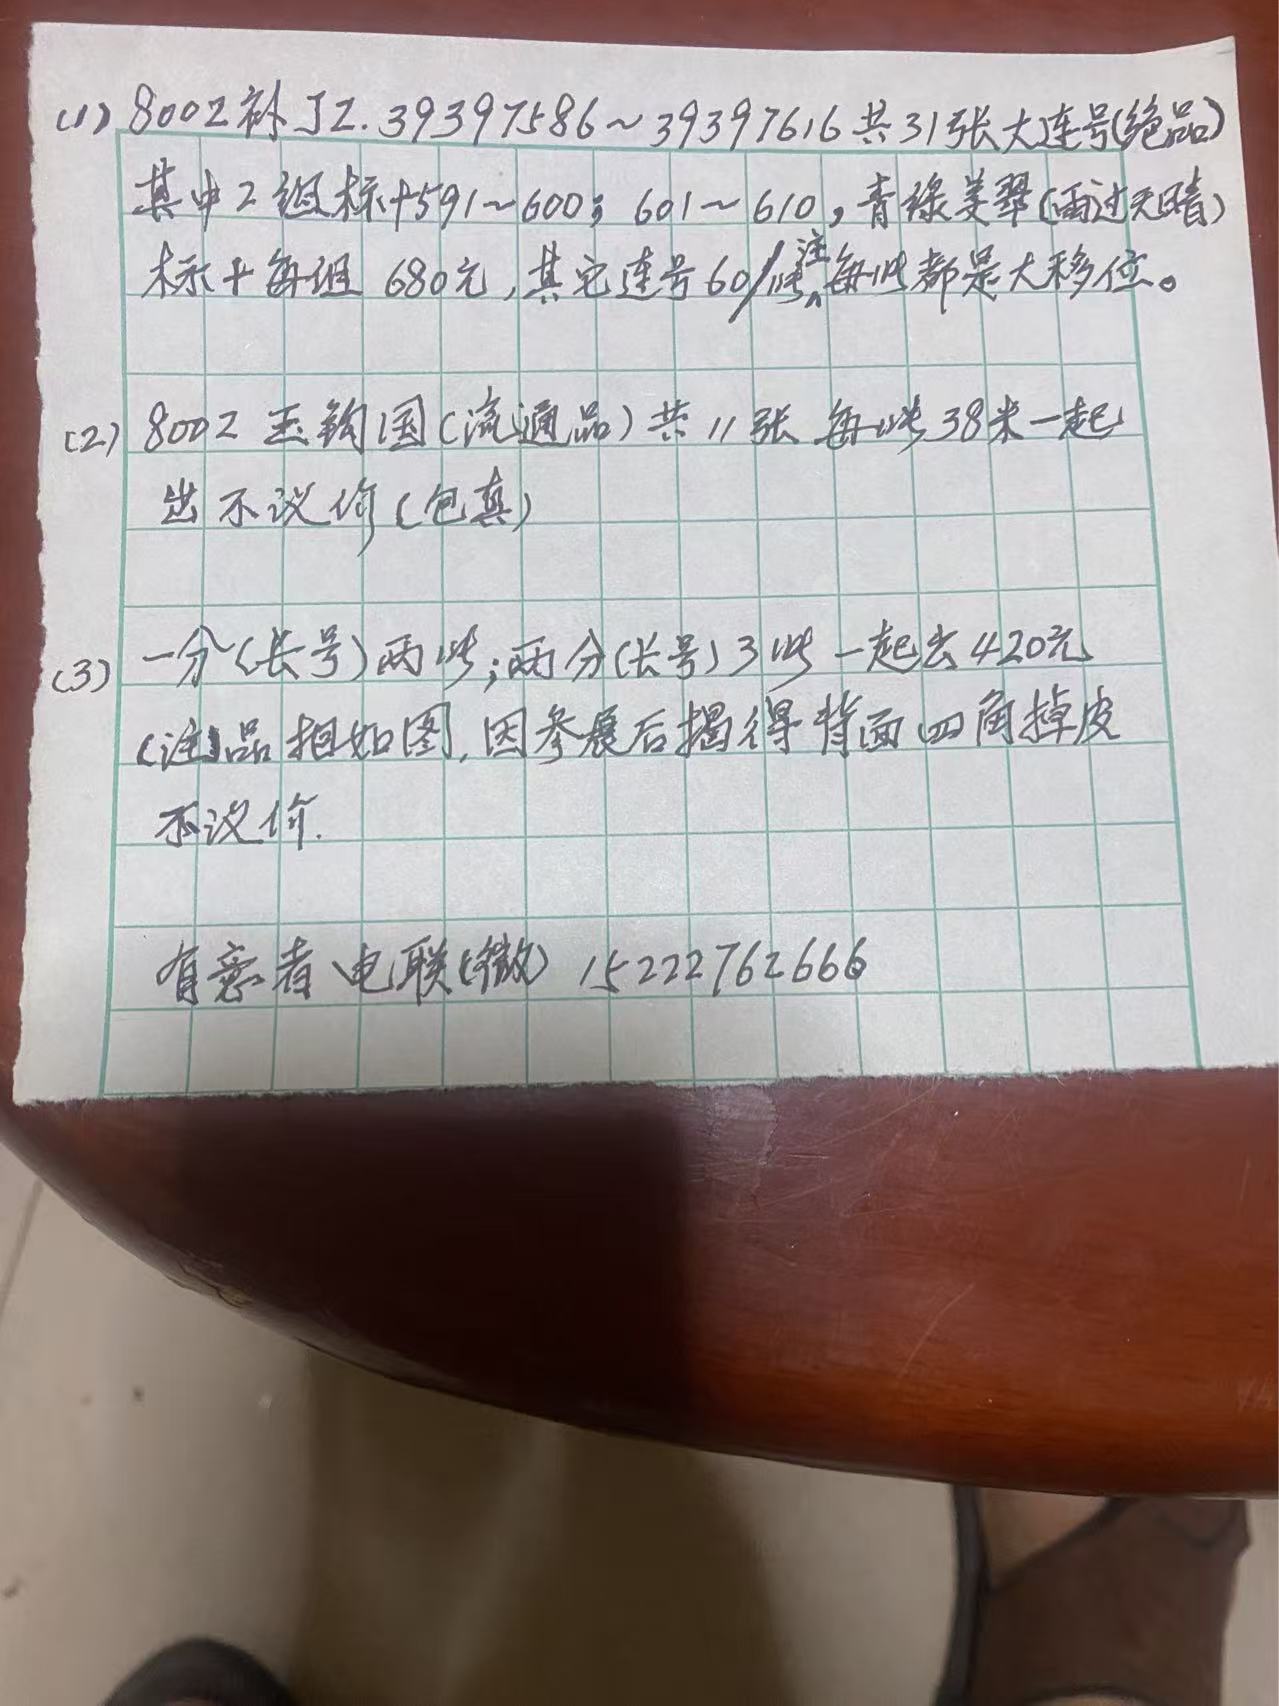 (1) 8002补JZ.39397586~39397616共31张大连号(绝品)
其中2组标十591~600; 601~610,青绿美翠(雨过天晴)
标十每组680元,其它连号60/张,注每张都是大移位。
(2) 8002玉钩国(流通品)共11张 每张38米一起
出不议价(包真)
(3) 一分(长号)两张;两分(长号)3张一起出420元
(注品相如图,因参展后揭得背面四角掉皮
不议价.
有意者电联(微) 15222762666